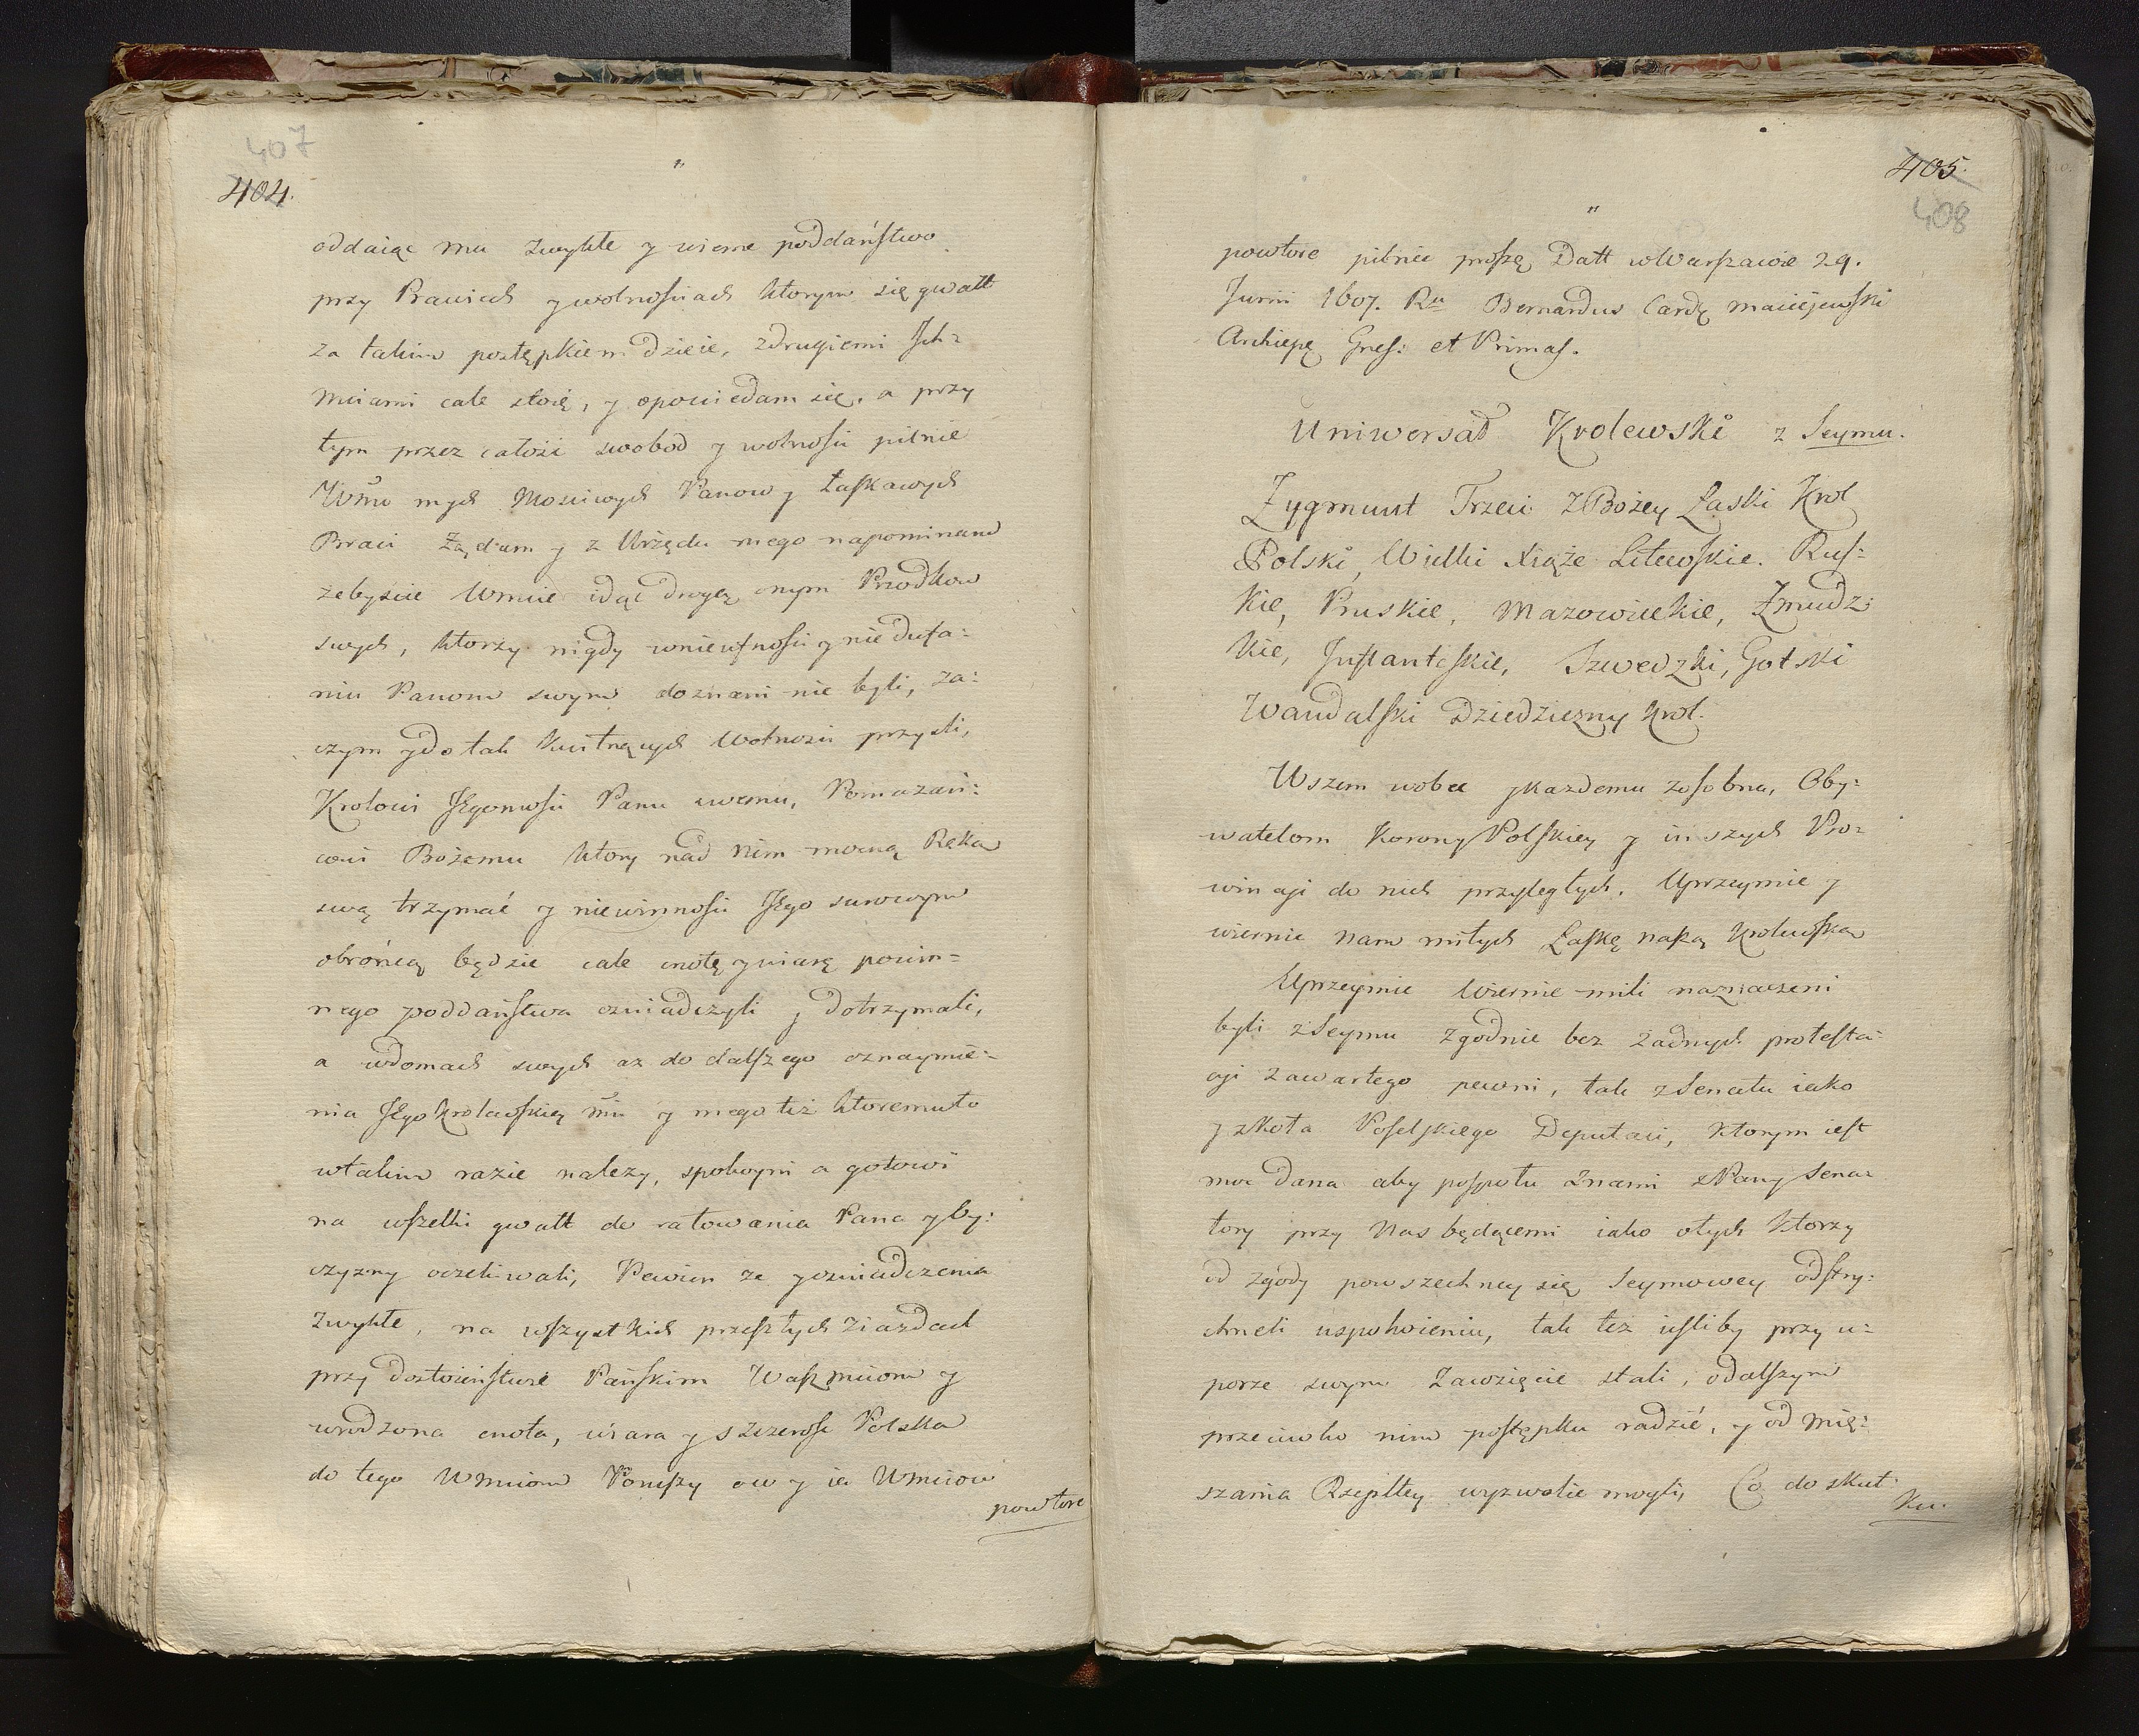 407
404.
oddaiąc mu zwykłe y wierne poddaństwo
przy Prawiech y wolnosciach ktorym się gwałt
za takim postępkiem dzieie, zdrugiemi Ich=
mciami cale stoię, y opowiedam się, a przy
tym przez całość swobod y wolnosci pilnie
Wmc mych Mosciwych Panow y łaskawych
Braci Żądam y z Urzędu mego napominam
żebyscie Wmcie idąc drogą onym Przodkow
swych, ktorzy nigdy wnieufnosci y nie dufa=
niu Panom swym doznani nie byli, za=
czym y do tak kwitnących Wolnosci przyszli,
Krolowi JEgomosci Panu swemu, Pomazań=
cowi Bożemu ktory nad nim mocną Ręka
swą trzymać y niewinnosci JEgo surowym
obrońcą będzie cale cnotę y wiarę powin=
nego poddaństwa oswiadczyli y dotrzymali,
a wdomach swych az do dalszego oznaymie=
nia JEgo Krolewskiey Mci y mego też ktoremu to
wtakim razie nalezy, spokoyni a gotowi
na wszelki gwałt do ratowania Pana y Oy=
czyzny oczekiwali, Pewien ze y oswiadczenia
zwykłe, na wszystkich przeszłych ziazdach
przy dostoieństwie Pańskim Waszmciom y
wrodzona cnota, wiara y szczerosc Polska
do tego Wmciom Powiszy y ia Wmciow
powtore
405.
408
powtore pilnie proszę Datt wWarszawie 29.
Junii 1607. Ru Bernardus Card Macieiewski
Archiepę Gnes: et Primas.
Uniwersał Krolewski z Seymu.
Zygmunt Trzeci z Bożey Łaski Krol
Polski, Wielki Xiąże Litewskie. Rus=
kie, Pruskie, Mazowieckie, Żmudz=
kie, Inflantskie, Szwedzki, Gotski
Wandalski Dziedziczny Krol.
Wszem wobec y kazdemu zosobna, Oby=
watelom Korony Polskiey y inszych Pro=
wincyi do nich przyległych. Uprzeymie y
wiernie nam miłych Łaskę naszą Krolewską
Uprzeymie Wiernie mili naznaczeni
byli z Seymu zgodnie bez żadnych protesta=
cyi zawartego pewni, tak z Senatu iako
y zKoła Poselskiego Deputaci, ktorym iest
moc dana aby pospołu znami zPany Sena=
tory przy Nas będącemi iako otych ktorzy
od zgody powszechney się Seymowey odstry=
chneli uspokoieniu, tak tez iesliby przy u=
porze swym zawzięcie stali, odalszym
przeciwko nim postępku radzić, y od mię=
szania Rzeplltey wyzwolic mogli, Co do skut=
ku.